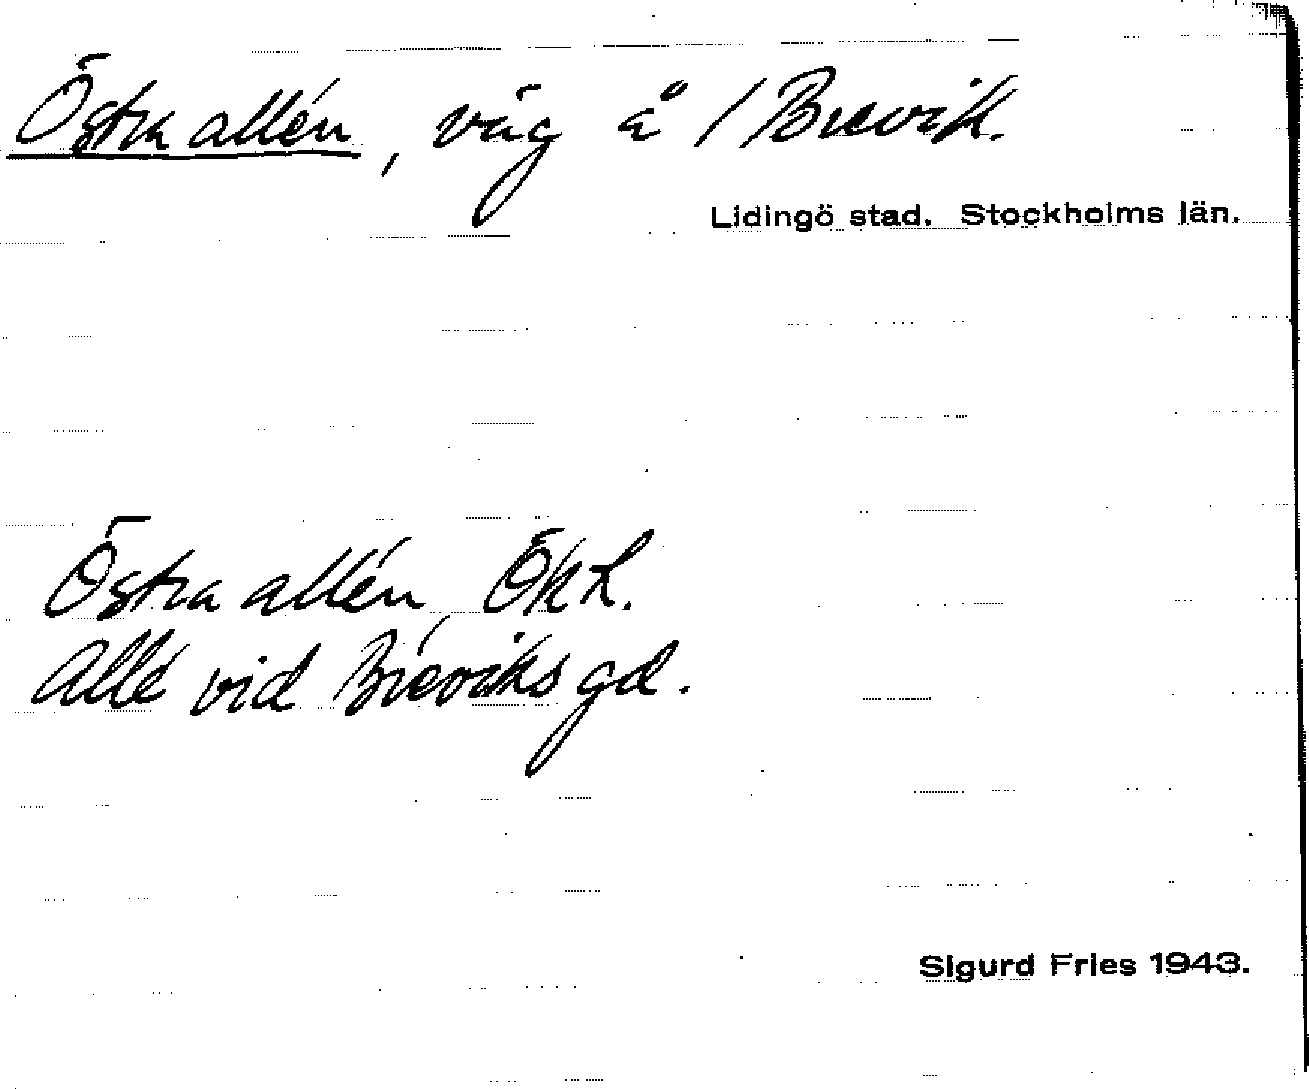 Östra allén, väg å / Brevik.
Lidingö stad. Stockholms län.
Östra allén, ÖKL.
Allé vid Breviks gd.
Sigurd Fries 1943.